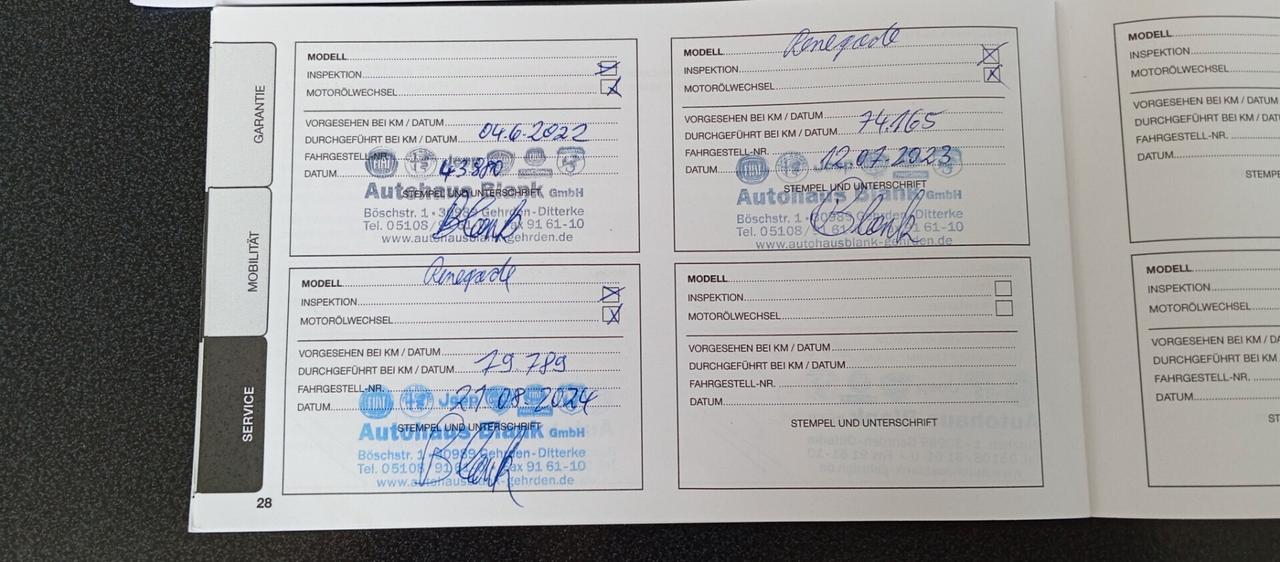 GARANTIE
MOBILITÄT
SERVICE
MODELL
INSPEKTION
MOTORÖLWECHSEL
VORGESEHEN BEI KM / DATUM
DURCHGEFÜHRT BEI KM / DATUM 04.6.2022
FAHRGESTELL-NR.
DATUM 43.880
FIAT Jeep
STEMPEL UND UNTERSCHRIFT
Autohaus Blank GmbH
Böschstr. 1 • 30989 Gehrden-Ditterke
Tel. 05108/91 Fax 91 61-10
www.autohausblank-gehrden.de
Blank
MODELL Renegade
INSPEKTION
MOTORÖLWECHSEL
VORGESEHEN BEI KM / DATUM 74.165
DURCHGEFÜHRT BEI KM / DATUM
FAHRGESTELL-NR. 12.07.2023
DATUM
Jeep
STEMPEL UND UNTERSCHRIFT
Autohaus Blank GmbH
Böschstr. 1 • 30989 Gehrden-Ditterke
Tel. 05108/ 91 61-10
www.autohausblank-gehrden.de
Blank
MODELL Renegade
INSPEKTION
MOTORÖLWECHSEL
VORGESEHEN BEI KM / DATUM
DURCHGEFÜHRT BEI KM / DATUM 79 789
FAHRGESTELL-NR.
DATUM 21 08 2024
FIAT Jeep
STEMPEL UND UNTERSCHRIFT
Autohaus Blank GmbH
Böschstr. 1 • 30989 Gehrden-Ditterke
Tel. 05108/91 Fax 91 61-10
www.autohausblank-gehrden.de
Blank
MODELL
INSPEKTION
MOTORÖLWECHSEL
VORGESEHEN BEI KM / DATUM
DURCHGEFÜHRT BEI KM / DATUM
FAHRGESTELL-NR.
DATUM
STEMPEL UND UNTERSCHRIFT
28
MODELL
INSPEKTION
MOTORÖLWECHSEL
VORGESEHEN BEI KM / DATUM
DURCHGEFÜHRT BEI KM / DATUM
FAHRGESTELL-NR.
DATUM
MODELL
INSPEKTION
MOTORÖLWECHSEL
VORGESEHEN BEI KM / DA
DURCHGEFÜHRT BEI KM / DA
FAHRGESTELL-NR.
DATUM